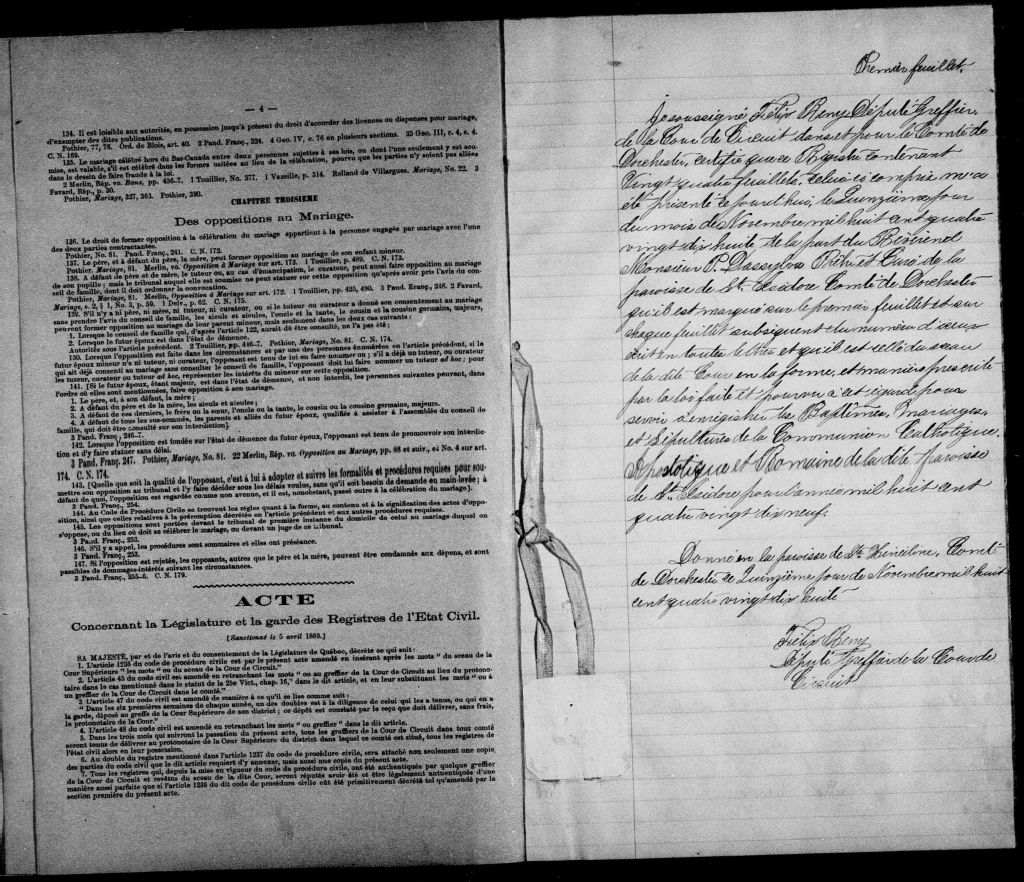 — 4 —
134. Il est loisible aux autorités, en possession jusqu'à présent du droit d'accorder des licences ou dispenses pour mariage,
d'exempter des dites publications.
Pothier, 77, 78. Ord. de Blois, art. 40. 2 Pand. Franç., 324. 4 Geo. IV, c. 76 en plusieurs sections. 35 Geo. III, c. 4, s. 4.
C. N. 169.
135. Le mariage célébré hors du Bas-Canada entre deux personnes sujettes à ses lois, ou dont l'une seulement y est sou-
mise, est valable, s'il est célébré dans les formes usitées au lieu de la célébration, pourvu que les parties n'y soient pas allées
dans le dessein de faire fraude à la loi.
2 Merlin, Rép. vo. Bans, pp. 436-7. 1 Touillier, No. 577. 1 Vazeille, p. 514. Rolland de Villargues. Mariage, No. 22. 3
Favard, Rép., p. 30.
Pothier, Mariage, 327, 363. Pothier, 390.
CHAPITRE TROISIEME
Des oppositions au Mariage.
136. Le droit de former opposition à la célébration du mariage appartient à la personne engagée par mariage avec l'une
des deux parties contractantes.
Pothier, No. 81. Pand. Franç., 241. C. N. 172.
137. Le père, et à défaut du père, la mère, peut former opposition au mariage de son enfant mineur.
Pothier. Mariage, 81. Merlin, vo. Opposition à Mariage sur art. 173. 1 Touillier, p. 489. C. N. 173.
138. A défaut de père et de mère, le tuteur et, au cas d'émancipation, le curateur, peut aussi faire opposition au mariage
de son pupille ; mais le tribunal auquel elle est soumise ne peut statuer sur cette opposition qu'après avoir pris l'avis du con-
seil de famille, dont il doit ordonner la convocation.
Pothier, Mariage, 81. Merlin, Opposition à Mariage sur art. 172. 1 Touillier, pp. 425, 490. 3 Pand. Franç., 248. 2 Favard,
Mariage, s. 2, § 1, No. 3, p. 59. 1 Delv., p. 62. C. N. 175.
139. S'il n'y a ni père, ni mère, ni tuteur, ni curateur, ou si le tuteur ou curateur a donné son consentement au mariage
sans prendre l'avis du conseil de famille, les aïeuls et aïeules, l'oncle et la tante, le cousin et la cousine germains, majeurs,
peuvent former opposition au mariage de leur parent mineur, mais seulement dans les deux cas suivants :
1. Lorsque le conseil de famille qui, d'après l'article 122, aurait dû être consulté, ne l'a pas été ;
2. Lorsque le futur époux est dans l'état de démence.
Autorités sous l'article précédent. 2 Touillier, pp. 486-7. Pothier, Mariage, 81. C. N. 174.
130. Lorsque l'opposition est faite dans les circonstances et par une des personnes énumérées en l'article précédent, si le
futur époux mineur n'a ni tuteur, ni curateur, l'opposant est tenu de lui en faire nommer un ; s'il a déjà un tuteur, ou curateur
qui ait déjà consenti au mariage sans consulter le conseil de famille, l'opposant doit lui faire nommer un tuteur ad hoc ; pour
les tuteur, curateur ou tuteur ad hoc, représenter les intérêts du mineur sur cette opposition.
141. [Si le futur époux, étant majeur, est dans l'état de démence, et non interdit, les personnes suivantes peuvent, dans
l'ordre où elles sont mentionnées, faire opposition à son mariage.
1. Le père, et, à son défaut, la mère ;
2. A défaut du père et de la mère, les aïeuls et aïeules ;
3. A défaut de ces derniers, le frère ou la sœur, l'oncle ou la tante, le cousin ou la cousine germains, majeurs.
4. A défaut de tous les sus-nommés, les parents et alliés du futur époux, qualifiés à assister à l'assemblée du conseil de
famille, qui doit être consulté sur son interdiction].
3 Pand. Franç., 246-7.
142. Lorsque l'opposition est fondée sur l'état de démence du futur époux, l'opposant est tenu de promouvoir son interdic-
tion et d'y faire statuer sans délai.
3 Pand. Franç. 247. Pothier, Mariage, No. 81. 22 Merlin, Rép. vo. Opposition au Mariage, pp. 88 et suiv., et No. 4 sur art.
174. C. N. 174.
143. [Quelque soit la qualité de l'opposant, c'est à lui à adopter et suivre les formalités et procédures requises pour sou-
mettre son opposition au tribunal et l'y faire décider sous les délais voulus, sans qu'il soit besoin de demande en main-levée ; à
défaut de quoi, l'opposition est regardée comme non avenue, et il est, nonobstant, passé outre à la célébration du mariage].
3 Pand. Franç., 254.
144. Au Code de Procédure Civile se trouvent les règles quant à la forme, au contenu et à la signification des actes d'oppo-
sition, ainsi que celles relatives à la péremption décrétée en l'article précédent et aux autres procédures requises.
145. Les oppositions sont portées devant le tribunal de première instance du domicile de celui au mariage duquel on
s'oppose, ou du lieu où doit se célébrer le mariage, ou devant un juge de ce tribunal.
3 Pand. Franç., 253.
146. S'il y a appel, les procédures sont sommaires et elles ont préséance.
3 Pand. Franç., 253.
147. Si l'opposition est rejetée, les opposants, autres que le père et la mère, peuvent être condamnés aux dépens, et sont
passibles de dommages-intérêts suivant les circonstances.
3 Pand. Franç., 255-6. C. N. 179.
ACTE
Concernant la Législature et la garde des Registres de l'Etat Civil.
[Sanctionné le 5 avril 1869.]
SA MAJESTÉ, par et de l'avis et du consentement de la Législature de Québec, décrète ce qui suit :
1. L'article 1236 du code de procédure civile est par le présent acte amendé en insérant après les mots " du sceau de la
Cour Supérieure " les mots " ou du sceau de la Cour de Circuit."
2. L'article 45 du code civil est amendé en retranchant les mots " ou au greffier de la Cour de Circuit au lieu du protono-
taire dans le cas mentionné dans le statut de la 25e Vict., chap. 16," dans le dit article, et en leur substituant les mots " ou à
un greffier de la Cour de Circuit dans le comté."
3 L'article 47 du code civil est amendé de manière à ce qu'il se lise comme suit :
" Dans les six premières semaines de chaque année, un des doubles est à la diligence de celui qui les a tenus, ou qui en a
la garde, déposé au greffe de la Cour Supérieure de son district ; ce dépôt est constaté par le reçu que doit délivrer, sans frais,
le protonotaire de la Cour."
4. L'article 48 du code civil est amendé en retranchant les mots " ou greffier " dans le dit article.
5. Dans les trois mois qui suivront la passation du présent acte, tous les greffiers de la Cour de Circuit dans tout comté
seront tenus de délivrer au protonotaire de la Cour Supérieure du district dans lequel ce comté est situé, tous les registres de
l'état civil alors en leur possession.
6. Au double du registre mentionné dans l'article 1237 du code de procédure civile, sera attaché non seulement une copie
des parties du code civil que le dit article requiert d'y annexer, mais aussi une copie du présent acte.
7. Tous les registres qui, depuis la mise en vigueur du code de procédure civile, ont été authentiqués par quelque greffier
de la Cour de Circuit et revêtus du sceau de la dite Cour, seront réputés avoir été et être légalement authentiqués d'une
manière aussi parfaite que si l'article 1236 du dit code de procédure civile eût été primitivement décrété tel qu'amendé par la
section première du présent acte.
Premier feuillet.
Je soussigné Félix Remy Député Greffier
de la Cour de Circuit dans et pour le Comté de
Dorchester, certifie que ce Régistre contenant
Vingt quatre feuillets, celui-ci compris m'a
été présenté ce jourd'hui, le Quinzième jour
du mois de Novembre mil huit cent quatre
vingt dix huit de la part du Révérend
Monsieur P. Dassylva Prêtre et Curé de la
paroisse de St. Isidore Comté de Dorchester
qu'il est marqué sur le premier feuillet et sur
chaque feuillet subséquent du numéro d'iceux
écrit en toutes lettres et qu'il est scellé du sceau
de la dite Cour en la forme, et manière prescrite
par la loi faite et pourvu à cet égard pour
servir à enregistrer les Baptêmes, Mariages,
et Sépultures de la Communion Catholique,
Apostolique et Romaine de la dite Paroisse
de St. Isidore pour l'année mil huit cent
quatre vingt dix neuf.
Donné en la paroisse de Ste Hénédine, Comté
de Dorchester le Quinzième jour de Novembre mil huit
cent quatre vingt dix huit
Félix Remy
Député Greffier de la Cour de
Circuit